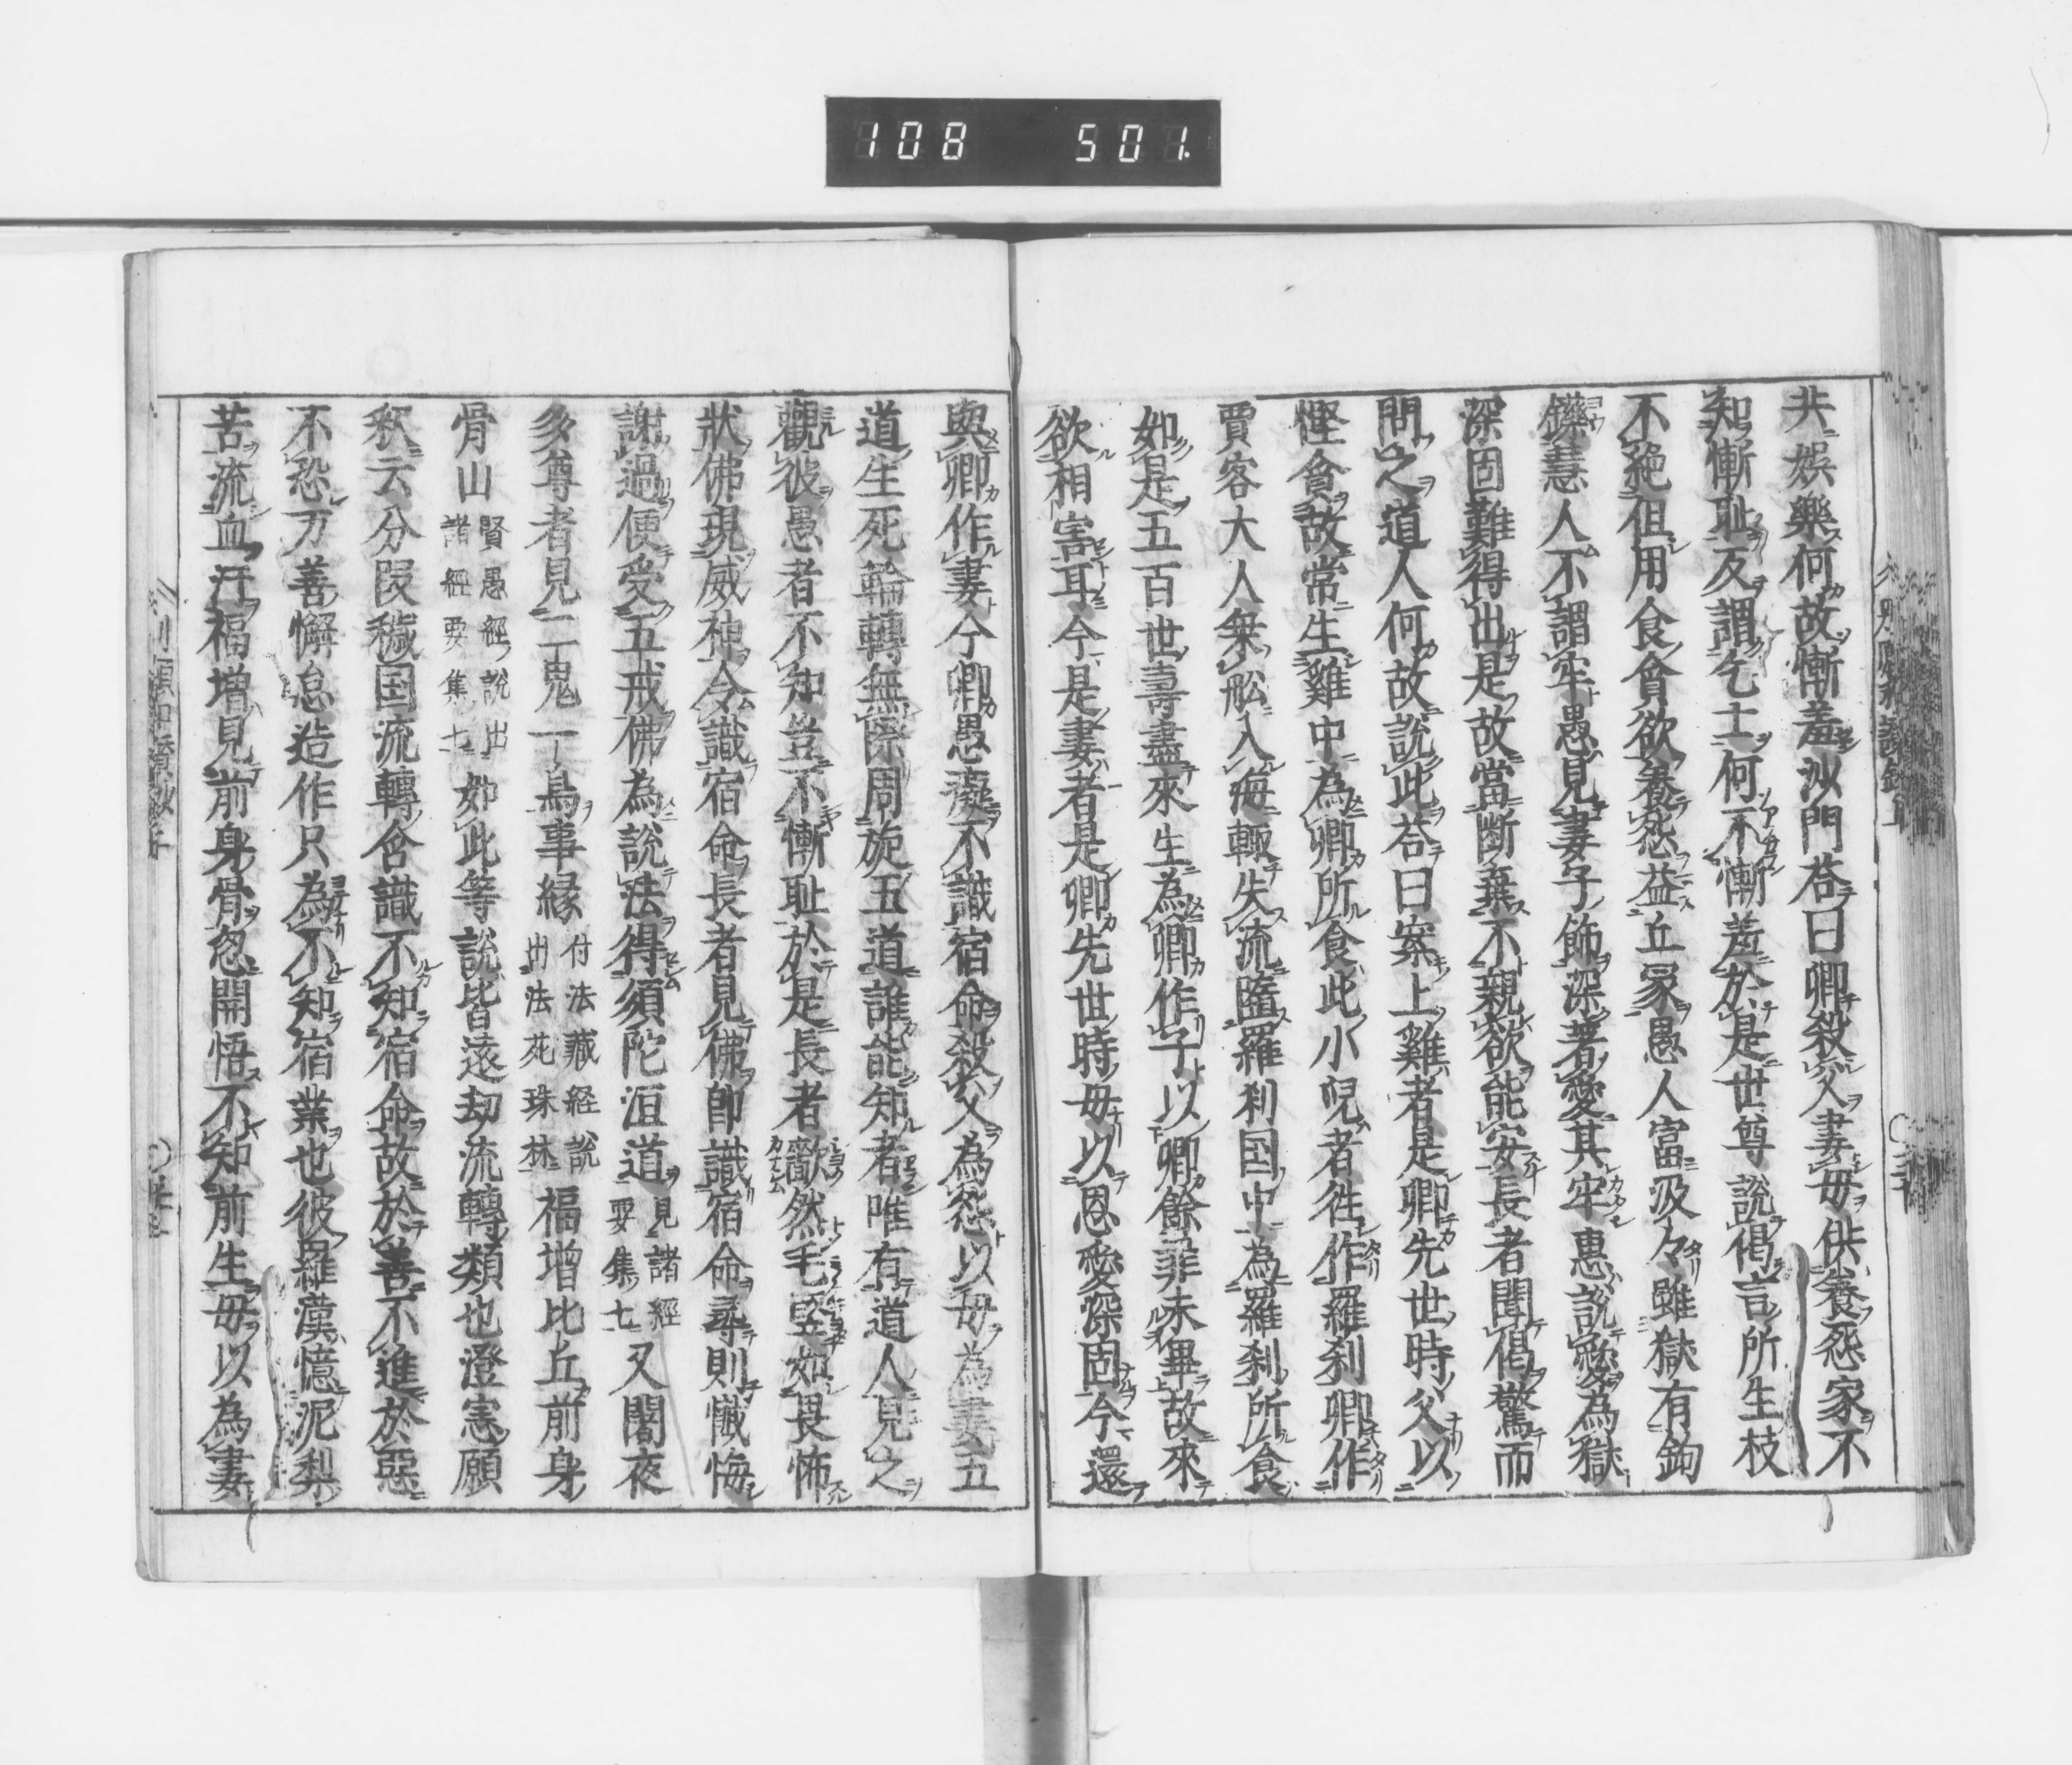 108 501.
共娯樂何故慚羞沙門荅曰卿殺父妻母供養怨家不
知慚耻反謂乞士何不慚羞於是世尊説偈言所生枝
不絶但用食貪欲養怨益丘冢愚人富汲々雖獄有鉤
鏁慧人不謂牢愚見妻子飾深著愛其牢惠説愛為獄
深固難得出是故當断棄不親欲能安長者聞偈驚而
問之道人何故説此荅曰案上雞者是卿先世時父以
慳貪故常生雞中為卿所食此小兒者徃作羅刹卿作
賈客大人乗舩入海輙失流墮羅刹国中為羅刹所食
如是五百世壽盡來生為卿作子以卿餘罪未畢故來
欲相害耳今是妻者是卿先世時母以恩愛深固今還
與卿作妻今卿愚癡不識宿命殺父為怨以母為妻五
道生死輪轉無際周旋五道誰能知者唯有道人見之
觀彼愚者不知豈不慚耻於是長者歠然毛竪如畏怖
狀佛現威神令識宿命長者見佛即識宿命尋則懴悔
謝過便受五戒佛為説法得須陀洹道見諸經要集七又闇夜
多尊者見二鬼一鳥事縁付法藏経説出法苑珠林福增比丘前身
骨山賢愚經説出諸經要集七如此等説皆遠劫流轉類也澄憲願
秋云分段穢国流轉含識不知宿命故於善不進於惡
不恐万善懈怠造作只為不知宿業也彼羅漢憶泥梨
苦流血汗福增見前身骨忽開悟不知前生母以為妻